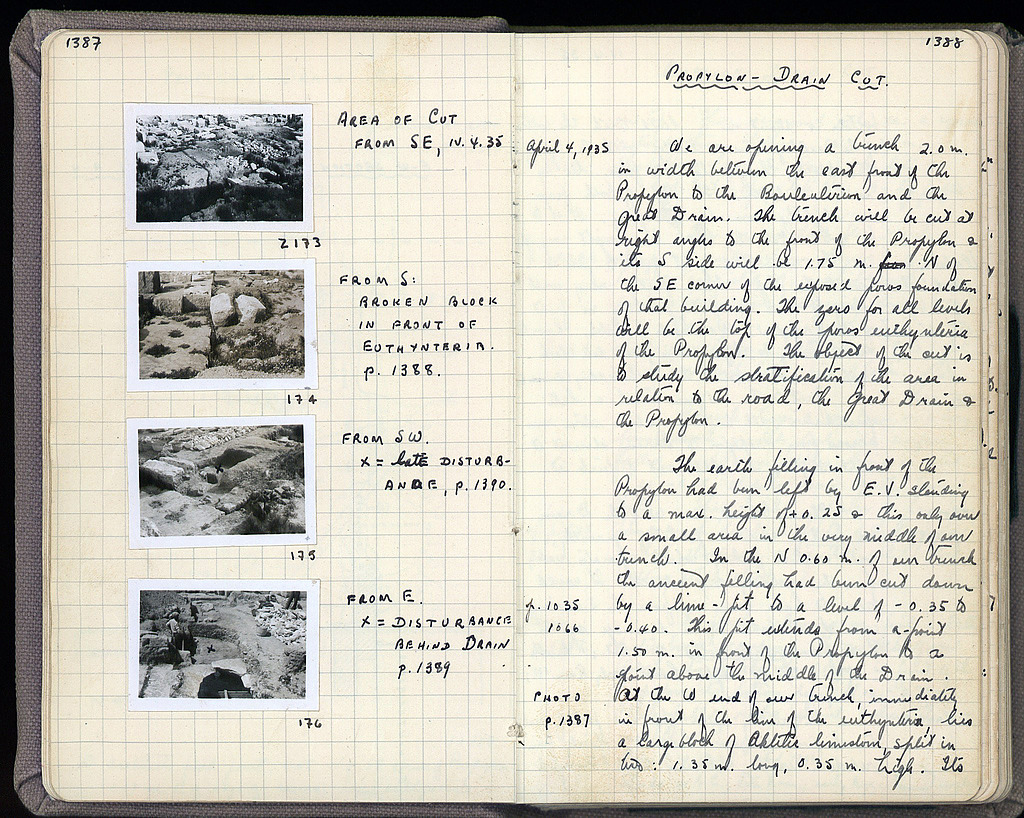 1387
AREA OF CUT
FROM SE, IV.4.35
2173
FROM S:
BROKEN BLOCK
IN FRONT OF
EUTHYNTERIA.
p. 1388.
174
FROM SW.
X = LATE DISTURB-
ANCE, p. 1390.
175
FROM E.
X = DISTURBANCE
BEHIND DRAIN
p. 1389
176
1388
PROPYLON - DRAIN CUT.
April 4, 1935
We are opening a trench 2.0 m.
in width between the east front of the
Propylon to the Bouleuterion and the
Great Drain. The trench will be cut at
right angles to the front of the Propylon &
its S side will be 1.75 m. N of
the SE corner of the exposed poros foundation
of that building. The zero for all levels
will be the top of the poros euthynteria
of the Propylon. The object of the cut is
to study the stratification of the area in
relation to the road, the Great Drain &
the Propylon.
The earth filling in front of the
Propylon had been left by E.V. standing
to a max. height of +0.25 & this only over
a small area in the very middle of our
trench. In the N 0.60 m. of our trench
the ancient filling had been cut down
p. 1035
1066
by a lime-pit to a level of -0.35 to
-0.40. This pit extends from a point
1.50 m. in front of the Propylon to a
point above the middle of the Drain.
PHOTO
p. 1387
At the W end of our trench, immediately
in front of the line of the euthynteria, lies
a large block of Akte limestone, split in
two: 1.35 m. long, 0.35 m. high. Its